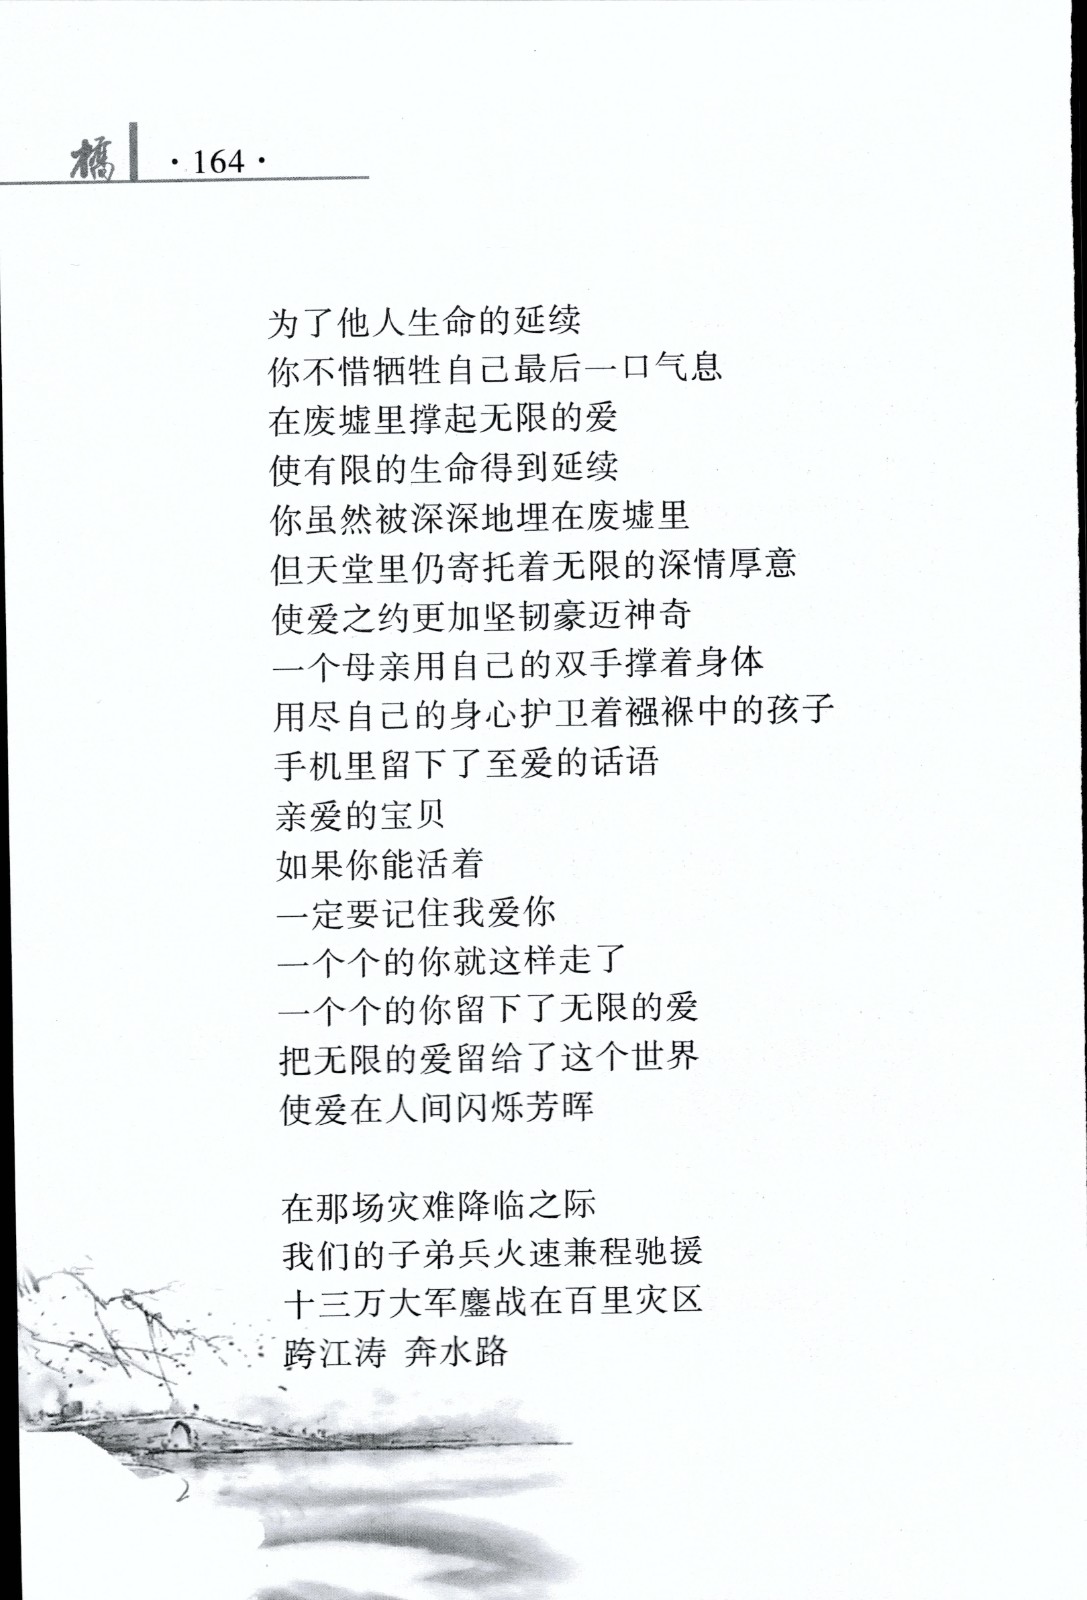 橋 ·164·
为了他人生命的延续
你不惜牺牲自己最后一口气息
在废墟里撑起无限的爱
使有限的生命得到延续
你虽然被深深地埋在废墟里
但天堂里仍寄托着无限的深情厚意
使爱之约更加坚韧豪迈神奇
一个母亲用自己的双手撑着身体
用尽自己的身心护卫着襁褓中的孩子
手机里留下了至爱的话语
亲爱的宝贝
如果你能活着
一定要记住我爱你
一个个的你就这样走了
一个个的你留下了无限的爱
把无限的爱留给了这个世界
使爱在人间闪烁芳晖
在那场灾难降临之际
我们的子弟兵火速兼程驰援
十三万大军鏖战在百里灾区
跨江涛 奔水路